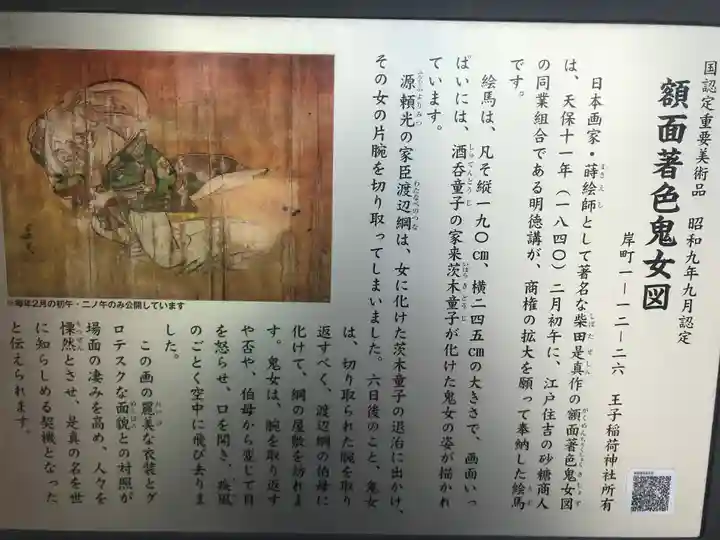 国認定重要美術品　昭和九年九月認定
額面著色鬼女図
岸町一ー一二ー二六　王子稲荷神社所有
日本画家・蒔絵師として著名な柴田是真作の額面著色鬼女図
は、天保十一年（一八四〇）二月初午に、江戸住吉の砂糖商人
の同業組合である明徳講が、商権の拡大を願って奉納した絵馬
です。
絵馬は、凡そ縦一九〇㎝、横二四五㎝の大きさで、画面いっ
ぱいには、酒呑童子の家来茨木童子が化けた鬼女の姿が描かれ
ています。
源頼光の家臣渡辺綱は、女に化けた茨木童子の退治に出かけ、
その女の片腕を切り取ってしまいました。六日後のこと、鬼女
は、切り取られた腕を取り
返すべく、渡辺綱の伯母に
化けて、綱の屋敷を訪れま
す。鬼女は、腕を取り返す
や否や、伯母から変じて目
を怒らせ、口を開き、疾風
のごとく空中に飛び去りま
した。
この画の麗美な衣装とグ
ロテスクな面貌との対照が
場面の凄みを高め、人々を
慄然とさせ、是真の名を世
に知らしめる契機となった
と伝えられます。
※毎年2月の初午・二ノ午のみ公開しています